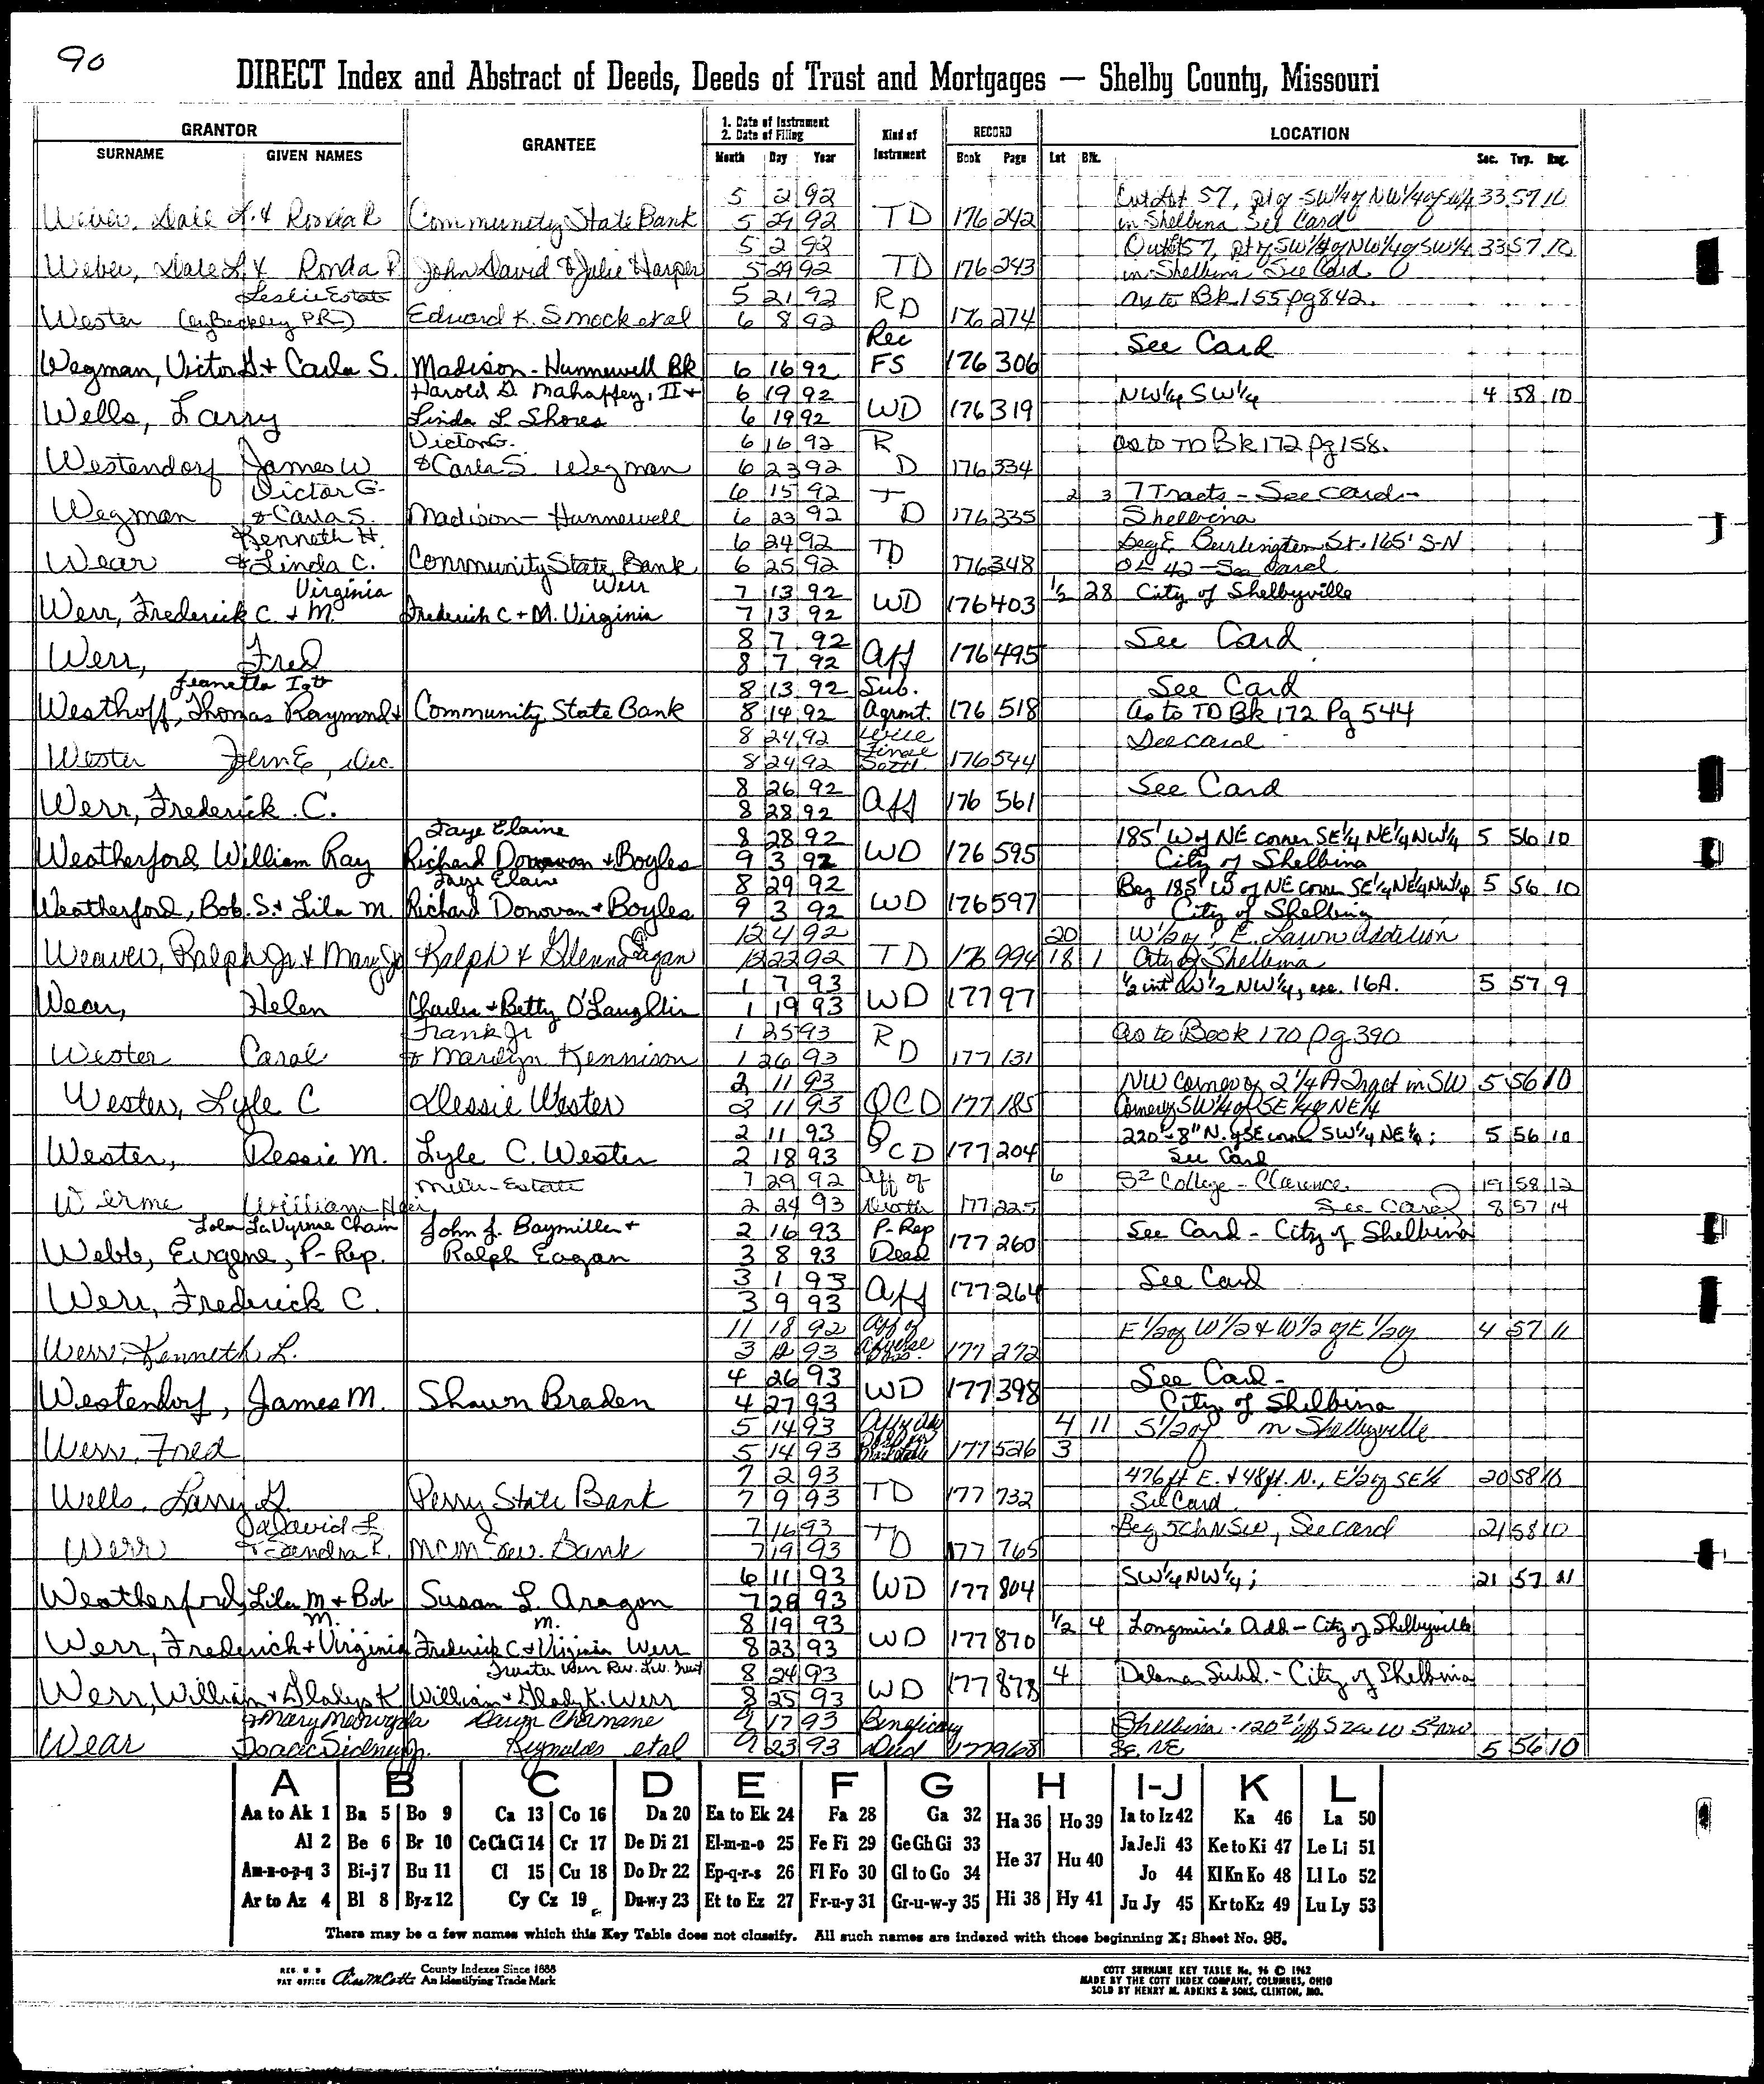 90
DIRECT Index and Abstract of Deeds, Deeds of Trust and Mortgages — Shelby County, Missouri
GRANTOR
SURNAME GIVEN NAMES
GRANTEE
1. Date of Instrument
2. Date of Filing
Month Day Year
Kind of Instrument
RECORD
Book Page
LOCATION
Lot Blk. Sec. Twp. Rng.
5 2 92 Outlot 57, pt of SW1/4 of NW1/4 of SW1/4 33 57 10
Dale L. & Ronda R Community State Bank 5 29 92 TD 176 242 in Shelbina See Card
5 2 92 Outlot 57, pt of SW1/4 of NW1/4 of SW1/4 33 57 10
Weber, Dale L & Ronda R John David & Julie Harper 5 29 92 TD 176 243 in Shelbina See Card
Leslie Estate 5 21 92 RD as to Bk 155 pg 842.
Wester (by Beckley PR) Edward K. Smock et al 6 8 92 176 274
Rec See Card
Wegman, Victor G + Carla S. Madison-Hunnewell Bk 6 16 92 FS 176 306
Harold D. Mahaffey, II + 6 19 92 NW1/4 SW1/4 4 58 10
Wells, Larry Linda L. Shores 6 19 92 WD 176 319
Victor G. 6 16 92 R as to TD Bk 172 pg 158.
Westendorf James W & Carla S. Wegman 6 23 92 D 176 334
Victor G. 6 15 92 T 2 3 7 Tracts - See card -
Wegman & Carla S. Madison - Hunnewell 6 23 92 D 176 335 Shelbina
Kenneth H. 6 24 92 TD Beg E Burlington St. 165' S-N
Wear & Linda C. Community State Bank 6 25 92 176 348 OL 42 - See Card
Virginia Werr 7 13 92 1/2 28 City of Shelbyville
Werr, Frederick C. + M. Frederick C + M. Virginia 7 13 92 WD 176 403
8 7 92 See Card
Werr, Fred 8 7 92 Aff 176 495
Jeanetta 8 13 92 Sub. See Card
Westhoff, Thomas Raymond & Community State Bank 8 14 92 Agrmt. 176 518 As to TD Bk 172 Pg 544
8 24 92 Final See card
Wester Dec. 8 24 92 Settl. 176 544
8 26 92 See Card
Werr, Frederick C. 8 28 92 Aff 176 561
Faye Elaine 8 28 92 185' W of NE corner SE1/4 NE1/4 NW1/4 5 56 10
Weatherford, William Ray Richard Donovan + Boyles 9 3 92 WD 176 595 City of Shelbina
Faye Elaine 8 29 92 Beg 185' W of NE corner SE1/4 NE1/4 NW1/4 5 56 10
Weatherford, Bob S. + Lila M. Richard Donovan + Boyles 9 3 92 WD 176 597 City of Shelbina
12 4 92 20 W1/2 of E. Lawn Addition
Weaver, Ralph Jr & Mary Jo Ralph & Glenna Eagan 12 22 92 TD 176 994 18 1 City of Shelbina
1 7 93 1/2 int W1/2 NW1/4, exc. 16A. 5 57 9
Wear, Helen Charles + Betty O'Laughlin 1 19 93 WD 177 97
Frank Jr 1 25 93 R as to Book 170 pg 390
Wester Carol & Marilyn Kennison 1 26 93 D 177 131
2 11 93 NW Corner of 2 1/4 A Tract in SW 5 56 10
Wester, Lyle C Dessie Wester 2 11 93 QCD 177 185 Corner of SW1/4 of SE1/4 of NE1/4
2 11 93 220'-8" N. of SE corner SW1/4 NE1/4; 5 56 10
Wester, Dessie M. Lyle C. Wester 2 18 93 QCD 177 204 See Card
7 29 92 Aff of 6 College - Clarence 19 58 12
William 2 24 93 Death 177 225 See Card 8 57 14
Lola LaVyrne Chain John J. Baymiller + 2 16 93 P-Rep See Card - City of Shelbina
Webb, Eugene, P-Rep. Ralph Eagan 3 8 93 Deed 177 260
3 1 93 See Card
Werr, Frederick C. 3 9 93 Aff 177 264
11 18 92 Aff of E1/2 of W1/2 & W1/2 of E1/2 of 4 57 11
Werr, Kenneth L. 3 12 93 Adverse Poss. 177 272
4 26 93 See Card -
Westendorf, James M. Shawn Braden 4 27 93 WD 177 398 City of Shelbina
5 14 93 4 11 S1/2 of in Shelbyville
Werr, Fred 5 14 93 177 526 3
7 2 93 476 ft E. + 48 ft. N., E1/2 of SE1/4 20 58 10
Wells, Larry G. Perry State Bank 7 9 93 TD 177 732 See Card
David L 7 16 93 T Beg 5ch N SW, See card 21 58 10
Werr & Sandra R. MCM Sav. Bank 7 19 93 D 177 765
6 11 93 SW1/4 NW1/4; 21 57 11
Weatherford, Lila M + Bob Susan L. Aragon 7 28 93 WD 177 804
M. M. 8 19 93 1/2 4 Longmire's Add - City of Shelbyville
Werr, Frederick + Virginia Frederick C + Virginia Werr 8 23 93 WD 177 870
Trustee Werr Rev. Liv. Trust 8 24 93 4 Delana Subd. - City of Shelbina
Werr, William + Gladys K William + Gladys K. Werr 8 25 93 WD 177 878
9 17 93 Beneficiary Shelbina
Wear Isaac Sidney Jr. Reynolds et al 9 23 93 Deed 177 968 SE NE 5 56 10
A B C D E F G H I-J K L
Aa to Ak 1 Ba 5 Bo 9 Ca 13 Co 16 Da 20 Ea to Ek 24 Fa 28 Ga 32 Ha 36 Ho 39 Ia to Iz 42 Ka 46 La 50
Al 2 Be 6 Br 10 Ce Ch Ci 14 Cr 17 De Di 21 El-m-n-o 25 Fe Fi 29 Ge Gh Gi 33 He 37 Hu 40 Ja Je Ji 43 Ke to Ki 47 Le Li 51
Am-n-o-p-q 3 Bi-j 7 Bu 11 Cl 15 Cu 18 Do Dr 22 Ep-q-r-s 26 Fl Fo 30 Gl to Go 34 Jo 44 Kl Kn Ko 48 Ll Lo 52
Ar to Az 4 Bl 8 By-z 12 Cy Cz 19 Du-w-y 23 Et to Ez 27 Fr-u-y 31 Gr-u-w-y 35 Hi 38 Hy 41 Ju Jy 45 Kr to Kz 49 Lu Ly 53
There may be a few names which this Key Table does not classify. All such names are indexed with those beginning X; Sheet No. 95.
REG. U S PAT OFFICE County Indexes Since 1888
An Identifying Trade Mark
COTT SURNAME KEY TABLE No. 96 © 1962
MADE BY THE COTT INDEX COMPANY, COLUMBUS, OHIO
SOLD BY HENRY M. ADKINS & SONS, CLINTON, MO.